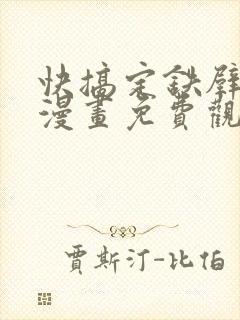 快搞定鉄壁
漫畫免費觀
賈斯汀-比伯